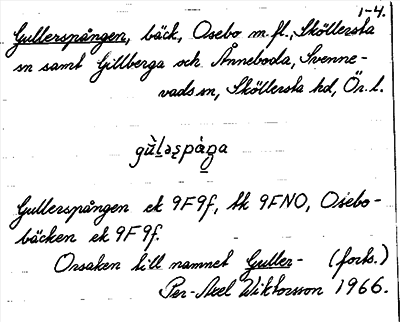 1-4.
Gullerspången, bäck, Osebo m.fl., Sköllersta
sn samt Gillberga och Änneboda, Svenne-
vads sn, Sköllersta hd, Ör. l.
Gullerspången ek 9F9f, tk 9FNO, Osebo-
bäcken ek 9F9f.
Orsaken till namnet Guller- (forts.)
Per-Axel Wiktorsson 1966.